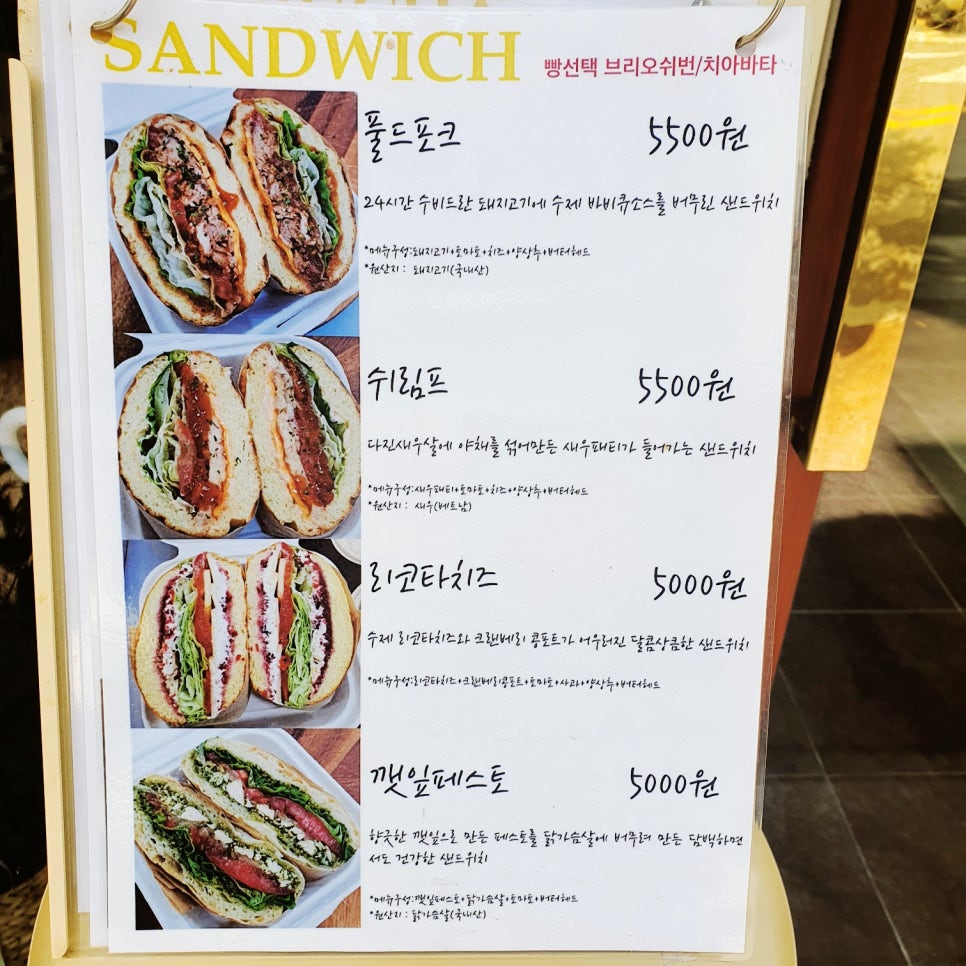 SANDWICH
빵선택 브리오쉬번/치아바타
풀드포크 5500원
24시간 수비드한 돼지고기에 수제 바비큐소스를 버무린 샌드위치
*메뉴구성:돼지고기+토마토+치즈+양상추+버터헤드
*원산지 : 돼지고기(국내산)
쉬림프 5500원
다진새우살에 야채를 섞어만든 새우패티가 들어가는 샌드위치
*메뉴구성:새우패티+토마토+치즈+양상추+버터헤드
*원산지 : 새우(베트남)
리코타치즈 5000원
수제 리코타치즈와 크랜베리 콩포트가 어우러진 달콤상큼한 샌드위치
*메뉴구성:리코타치즈+크랜베리콩포트+토마토+사과+양상추+버터헤드
깻잎페스토 5000원
향긋한 깻잎으로 만든 페스토를 닭가슴살에 버무려 만든 담백하면
서도 건강한 샌드위치
*메뉴구성:깻잎페스토+닭가슴살+토마토+버터헤드
*원산지 : 닭가슴살(국내산)